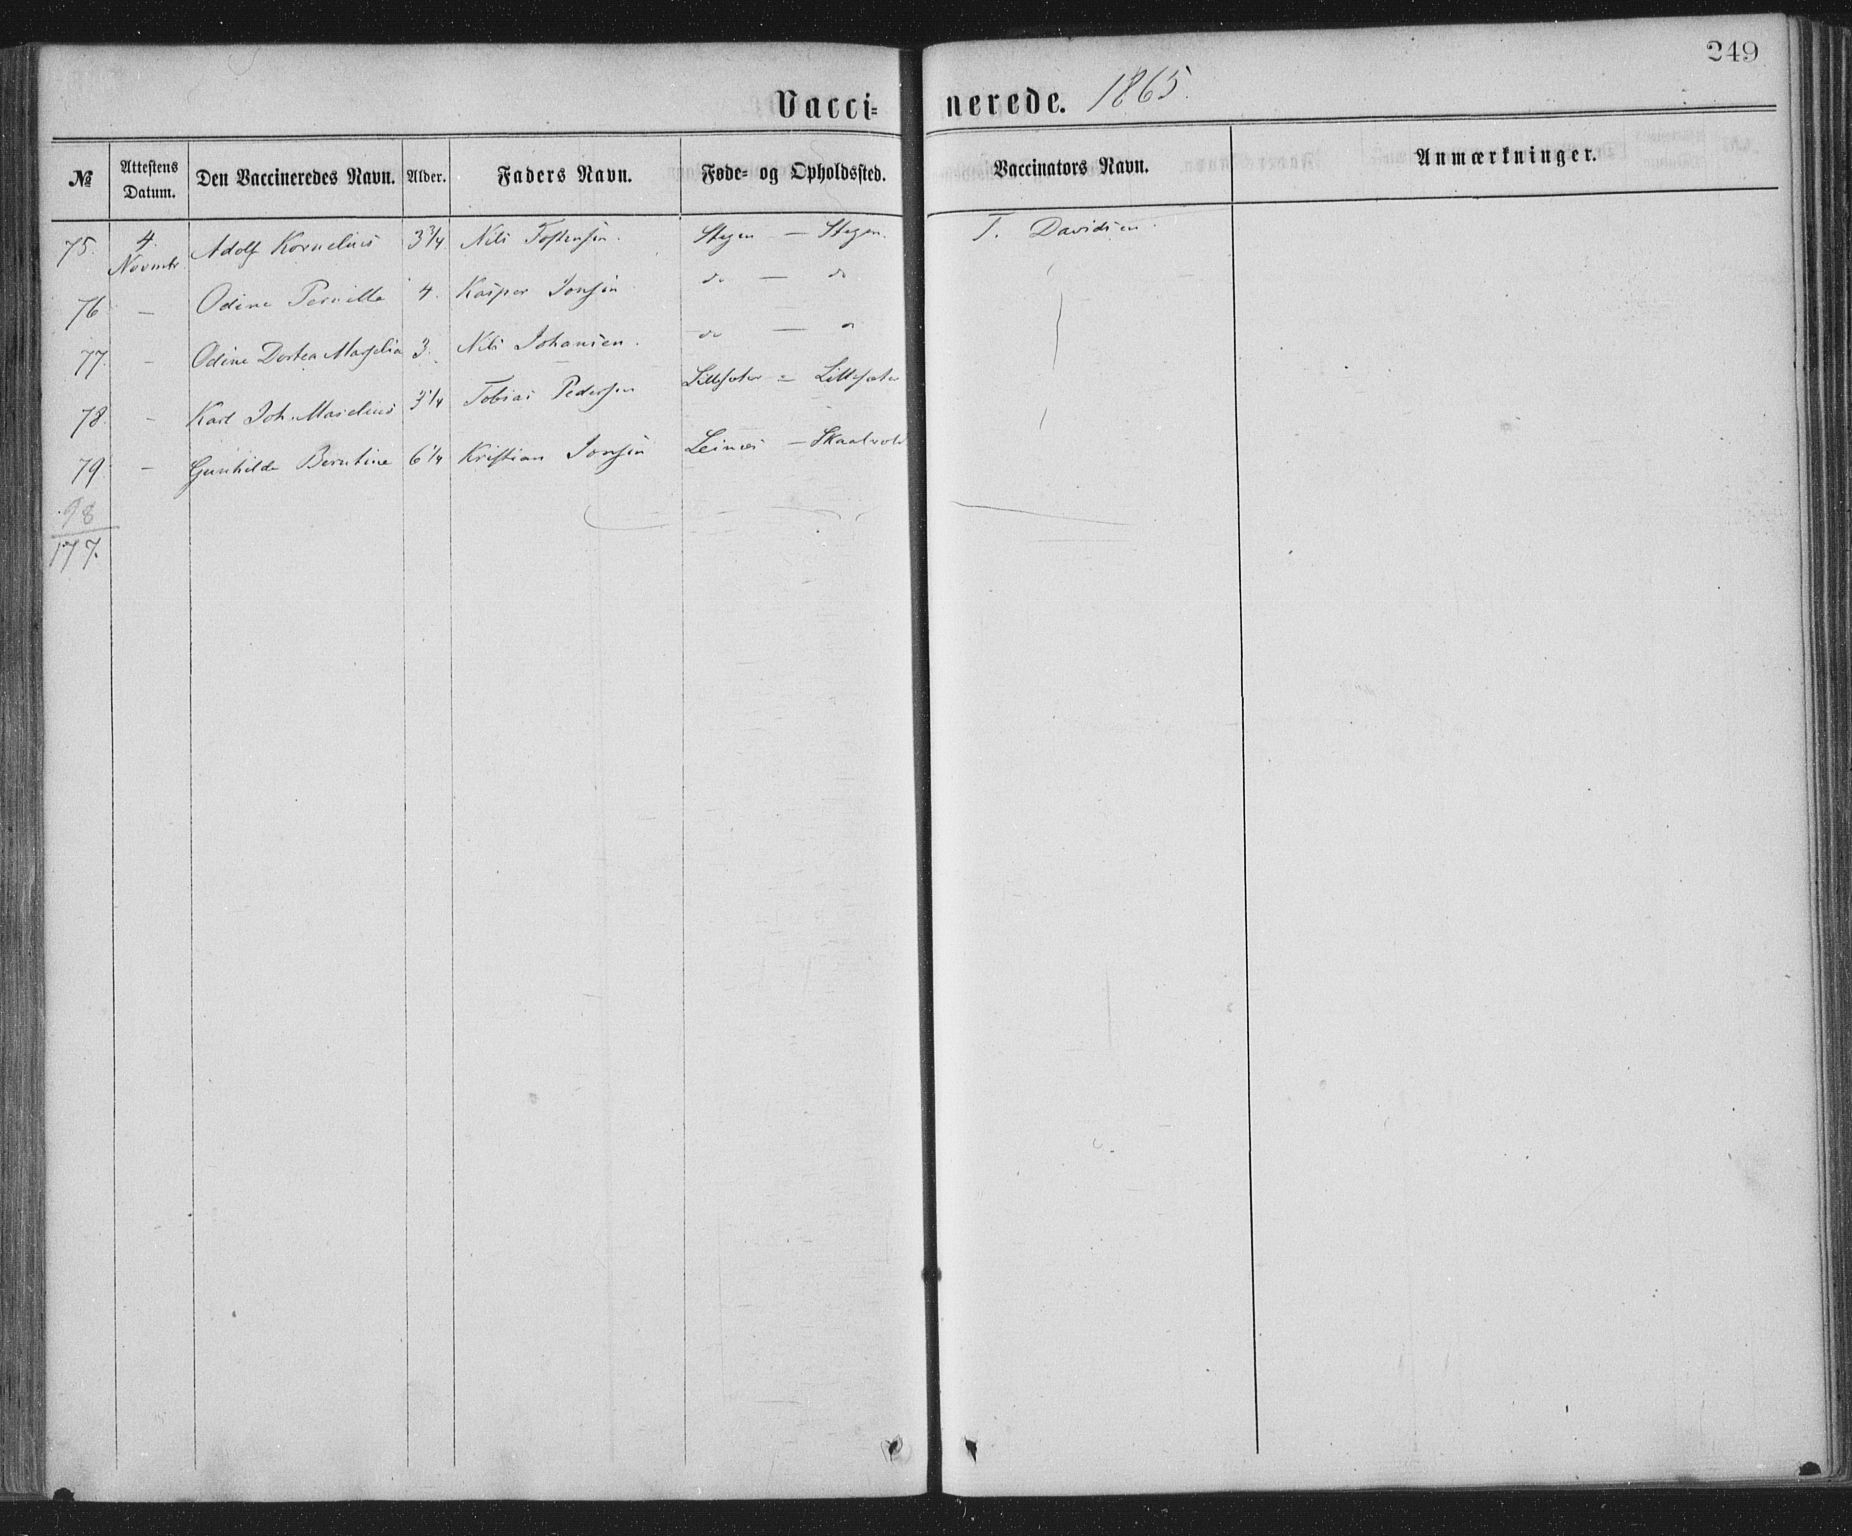 249
Vacci= nerede. 1865.
№ Attestens Datum. Den Vaccineredes Navn. Alder. Faders Navn. Føde- og Opholdssted. Vaccinators Navn. Anmærkninger.
75. 4. Novmbr Adolf Kornelius 3 3/4 Nils Tostensen. Stegen — Stegen. T. Davidsen.
76 — Odine Pernille 4. Kasper Jonsen do — do
77. — Odine Dortea 3. Nils Johansen. do — do
78. — Karl Joh. Maselius 3 1/4 Tobias Pedersen Lillesæter = Lillesæter
79. — Gunhilde Berntine 6 1/4 Kristian Jonsen Leines — Skaalvold
98
177.